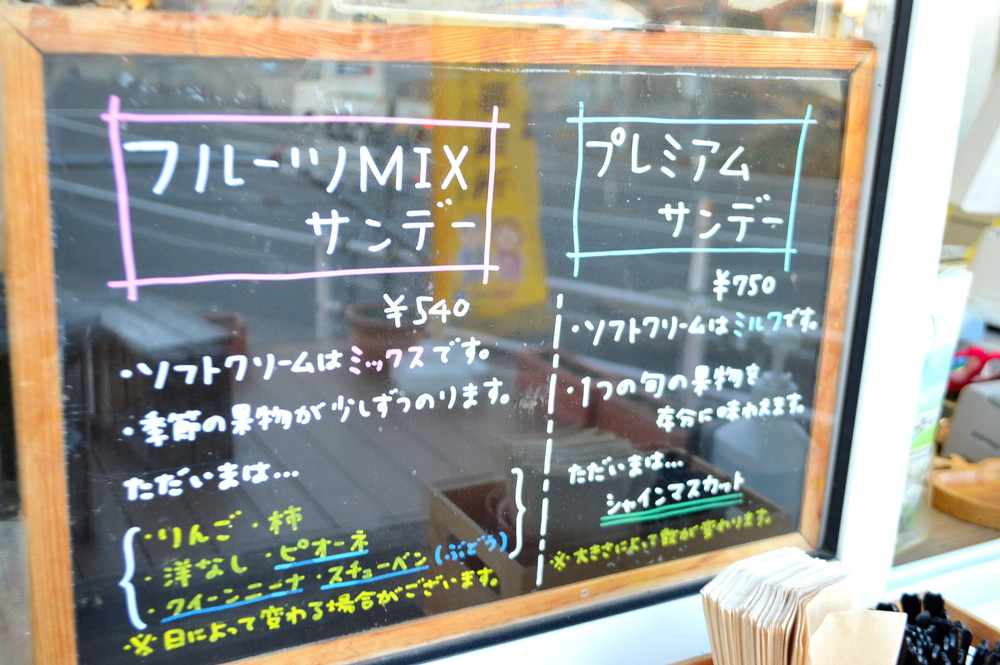 フルーツMIX
サンデー
¥540
・ソフトクリームはミックスです。
・季節の果物が少しずつのります。
ただいまは…
・りんご・柿
・洋なし・ピオーネ
・クイーンニーナ・スチューベン(ぶどう)
※日によって変わる場合がございます。
プレミアム
サンデー
¥750
・ソフトクリームはミルクです。
・1つの旬の果物を
存分に味わえます。
ただいまは…
シャインマスカット
※大きさによって数が変わります。